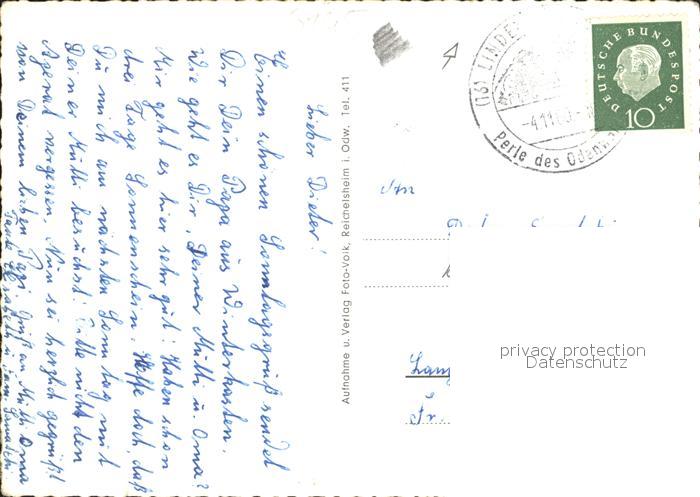 Lieber Dieter!
einen schönen Sonntagsgruß sendet
Dir Dein Papa aus Winterkasten.
Wie geht es Dir, Deiner Mutti u. Oma?
Mir geht es hier sehr gut! Haben schon
drei Tage Sonnenschein. Hoffe doch, daß
Du mich am nächsten Sonntag mit
Deiner Mutti besuchst! Bitte nicht den
vergessen. Nun sei herzlich gegrüßt
von Deinem lieben Papi. Gruß an Mutti, Oma
Aufnahme u. Verlag Foto-Volk, Reichelsheim i. Odw. Tel. 411
(16) LINDE
-4.11.60-
Perle des Odenw
DEUTSCHE BUNDESPOST
10
An
privacy protection
Datenschutz